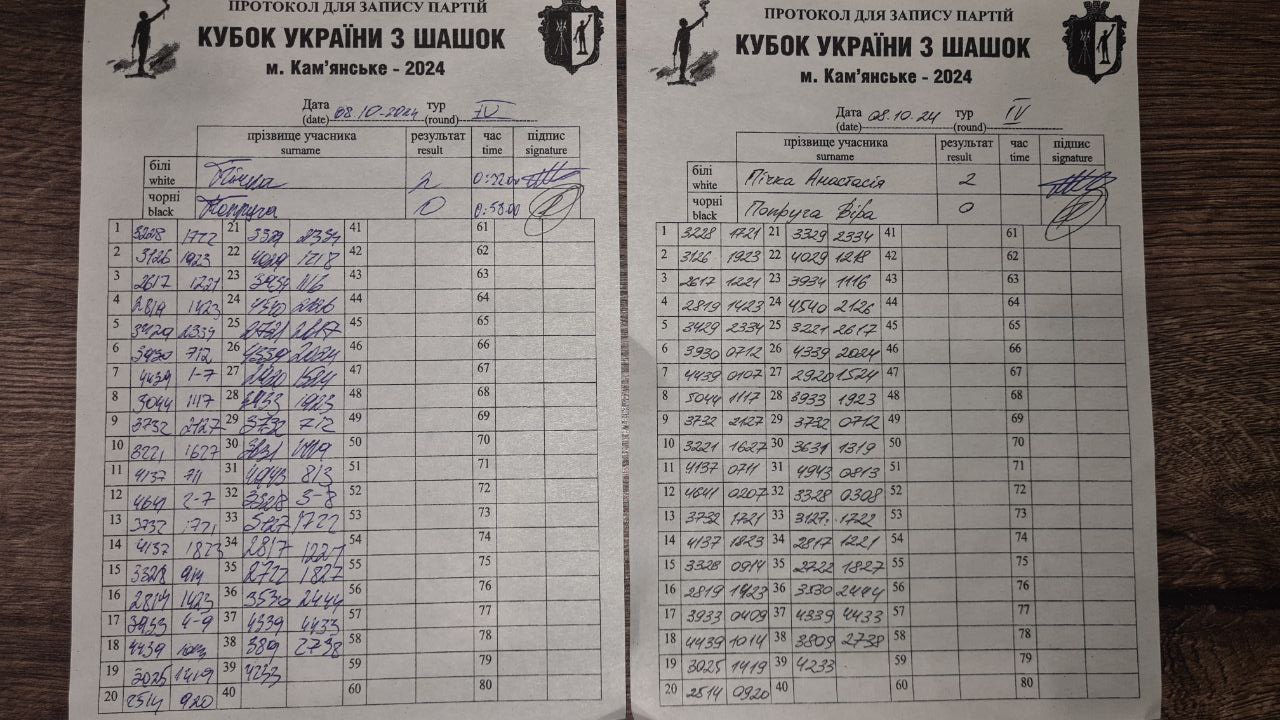 ПРОТОКОЛ ДЛЯ ЗАПИСУ ПАРТІЙ
КУБОК УКРАЇНИ З ШАШОК
м. Кам’янське - 2024
Дата 08.10-2024 тур IV
(date) (round)
прізвище учасника результат час підпис
surname result time signature
білі Пічка 2 0:32.00
white
чорні Попруга 0 0:58.00
black
1 3228 1722 21 3329 2334 41 61
2 3126 1923 22 4029 1218 42 62
3 2617 1221 23 3934 1116 43 63
4 2819 1423 24 4540 2126 44 64
5 3429 2334 25 2617 45 65
6 3930 712 26 4339 2024 46 66
7 4439 1-7 27 2920 1524 47 67
8 5044 1117 28 3933 1923 48 68
9 3732 2127 29 3732 712 49 69
10 3221 1627 30 3631 1319 50 70
11 4137 711 31 4943 813 51 71
12 4641 2-7 32 3328 3-8 52 72
13 3732 1721 33 3127 1722 53 73
14 4137 1823 34 2817 1221 54 74
15 3328 914 35 2722 1827 55 75
16 2819 1423 36 3530 2444 56 76
17 3933 4-9 37 4339 4433 57 77
18 4439 1014 38 389 2738 58 78
19 3025 1419 39 4233 59 79
20 2514 920 40 60 80
ПРОТОКОЛ ДЛЯ ЗАПИСУ ПАРТІЙ
КУБОК УКРАЇНИ З ШАШОК
м. Кам’янське - 2024
Дата 08.10.24 тур IV
(date) (round)
прізвище учасника результат час підпис
surname result time signature
білі Пічка Анастасія 2
white
чорні Попруга Віра 0
black
1 3228 1721 21 3329 2334 41 61
2 3126 1923 22 4029 1218 42 62
3 2617 1221 23 3934 1116 43 63
4 2819 1423 24 4540 2126 44 64
5 3429 2334 25 3221 2617 45 65
6 3930 0712 26 4339 2024 46 66
7 4439 0107 27 2920 1524 47 67
8 5044 1117 28 3933 1923 48 68
9 3732 2127 29 3732 0712 49 69
10 3221 1627 30 3631 1319 50 70
11 4137 0711 31 4943 0813 51 71
12 4641 0207 32 3328 0308 52 72
13 3732 1721 33 3127. 1722 53 73
14 4137 1823 34 2817 1221 54 74
15 3328 0914 35 2722 1827 55 75
16 2819 1423 36 3530 2444 56 76
17 3933 0409 37 4339 4433 57 77
18 4439 1014 38 3809 2738 58 78
19 3025 1419 39 4233 59 79
20 2514 0920 40 60 80